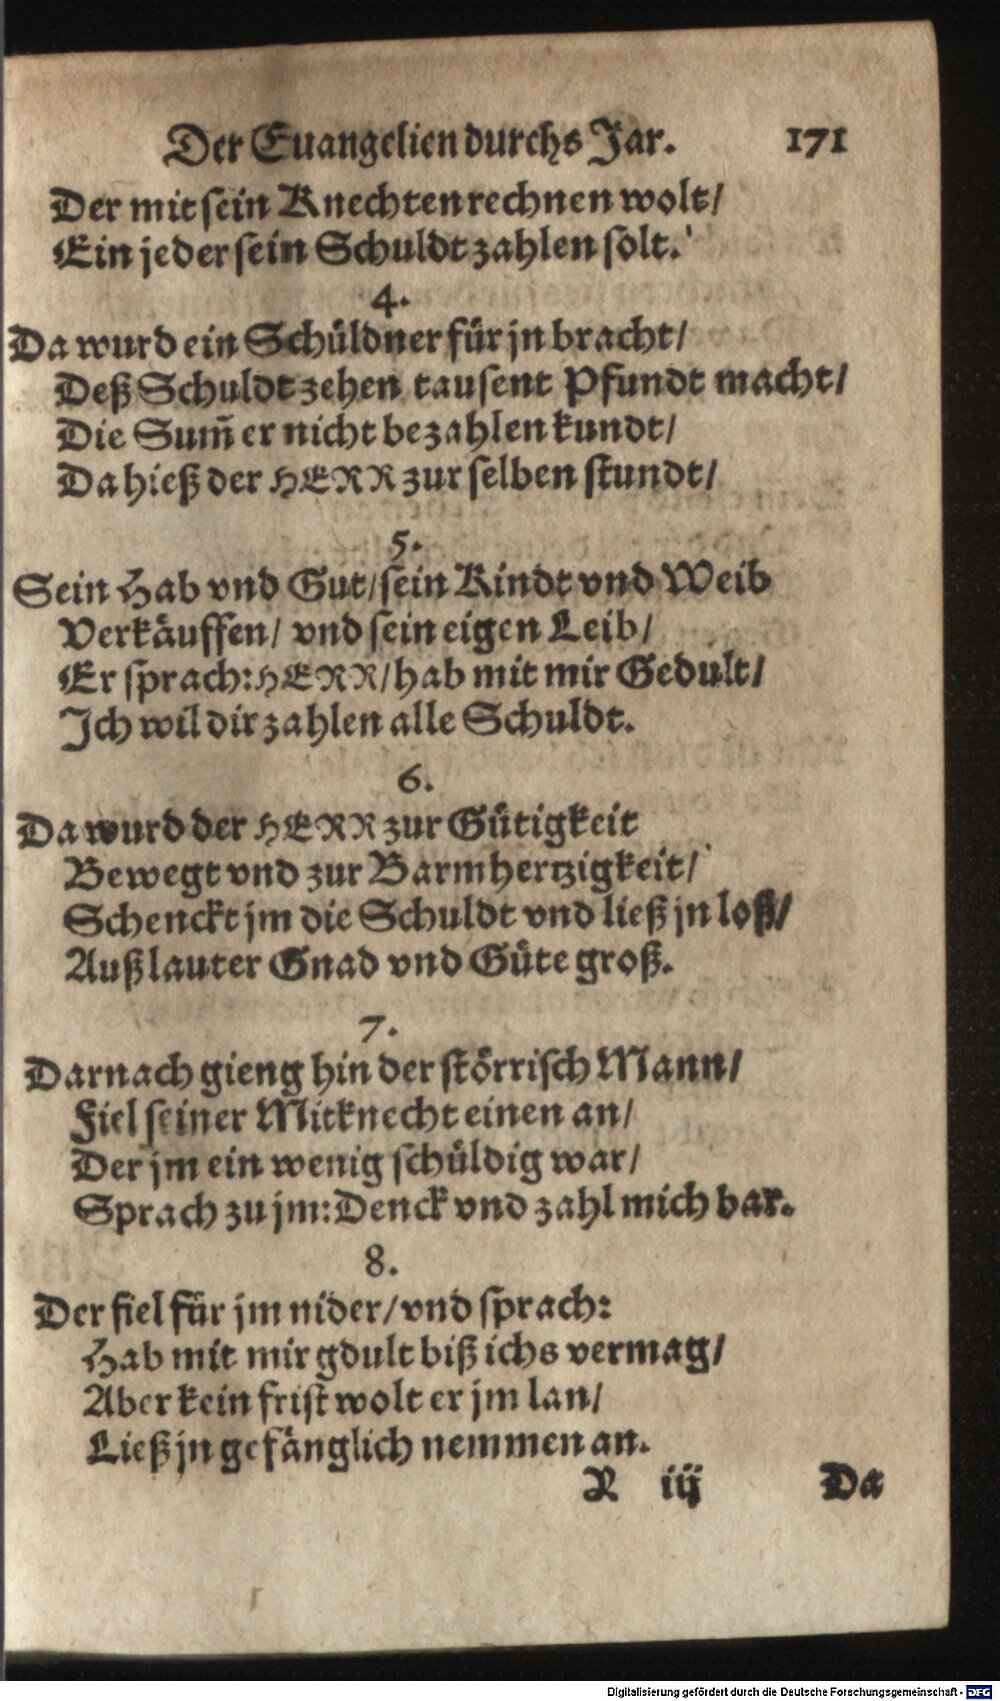 Der Euangelien durchs Jar. 171
Der mit sein Knechten rechnen wolt/
Ein jeder sein Schuldt zahlen solt.
4.
Da wurd ein Schüldner für jn bracht/
Deß Schuldt zehen tausent Pfundt macht/
Die Sum̃ er nicht bezahlen kundt/
Da hieß der HERR zur selben stundt/
5.
Sein Hab vnd Gut/ sein Kindt vnd Weib
Verkäuffen/ vnd sein eigen Leib/
Er sprach: HERR/ hab mit mir Gedult/
Ich wil dir zahlen alle Schuldt.
6.
Da wurd der HERR zur Gütigkeit
Bewegt vnd zur Barmhertzigkeit/
Schenckt jm die Schuldt vnd ließ jn loß/
Auß lauter Gnad vnd Güte groß.
7.
Darnach gieng hin der störrisch Mann/
Fiel seiner Mitknecht einen an/
Der jm ein wenig schüldig war/
Sprach zu jm: Denck vnd zahl mich bar.
8.
Der fiel für jm nider/ vnd sprach:
Hab mit mir gdult biß ichs vermag/
Aber kein frist wolt er jm lan/
Ließ jn gefänglich nemmen an.
R iij Da
Digitalisierung gefördert durch die Deutsche Forschungsgemeinschaft - DFG